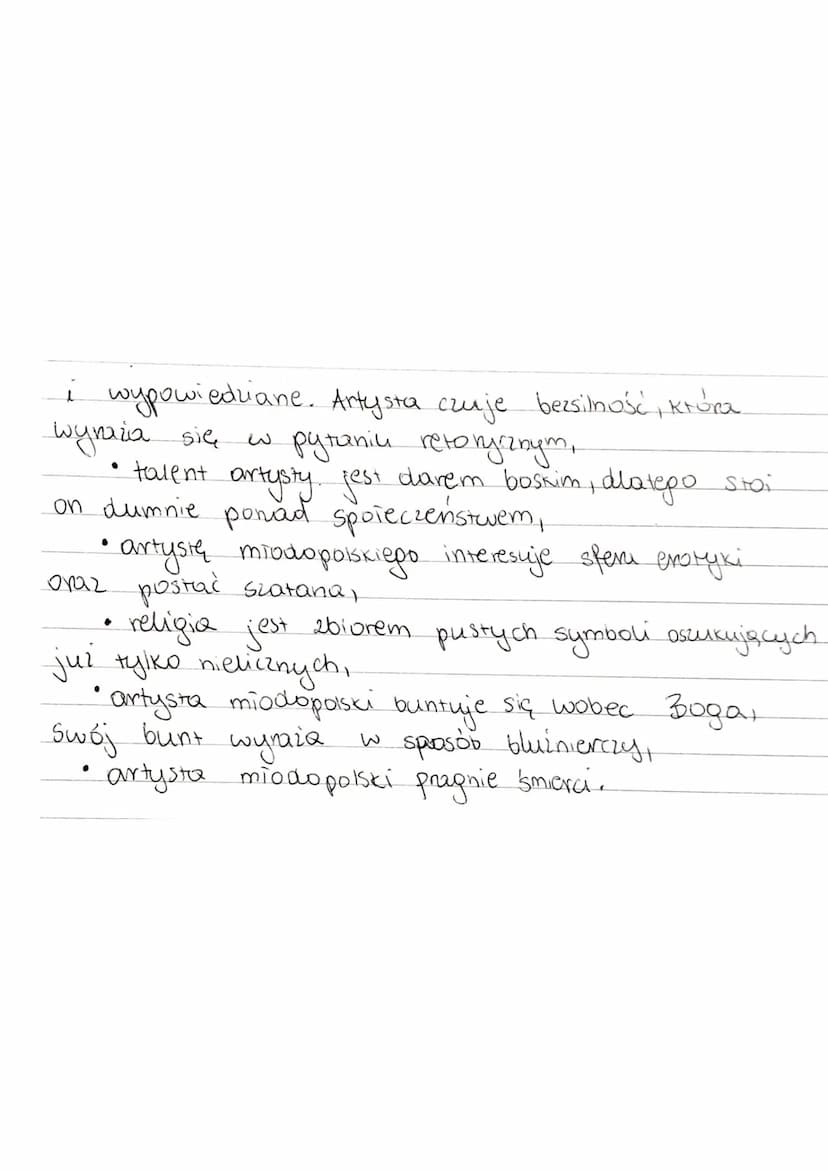 i wypowiedziane. Artysta czuje bezsilność, która
wyraża się w pytaniu retorycznym,
• talent artysty jest darem boskim, dlatego stoi
on dumnie ponad społeczeństwem,
• artystę młodopolskiego interesuje sfera erotyki
oraz postać szatana,
• religia jest zbiorem pustych symboli oszukujących
już tylko nielicznych,
• artysta młodopolski buntuje się wobec Boga,
swój bunt wyraża w sposób bluźnierczy,
• artysta młodopolski pragnie śmierci.